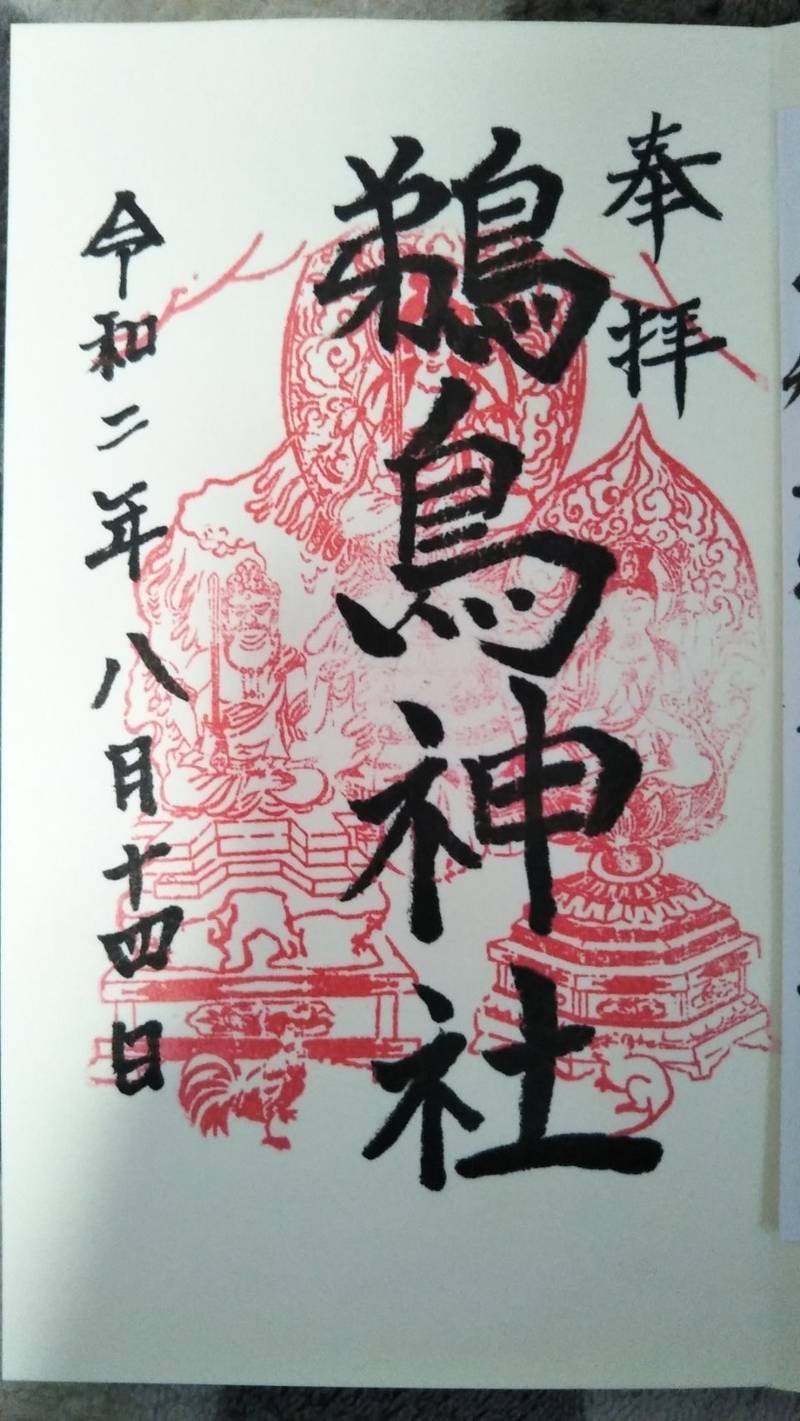 奉拝
鵜鳥神社
令和二年八月十四日